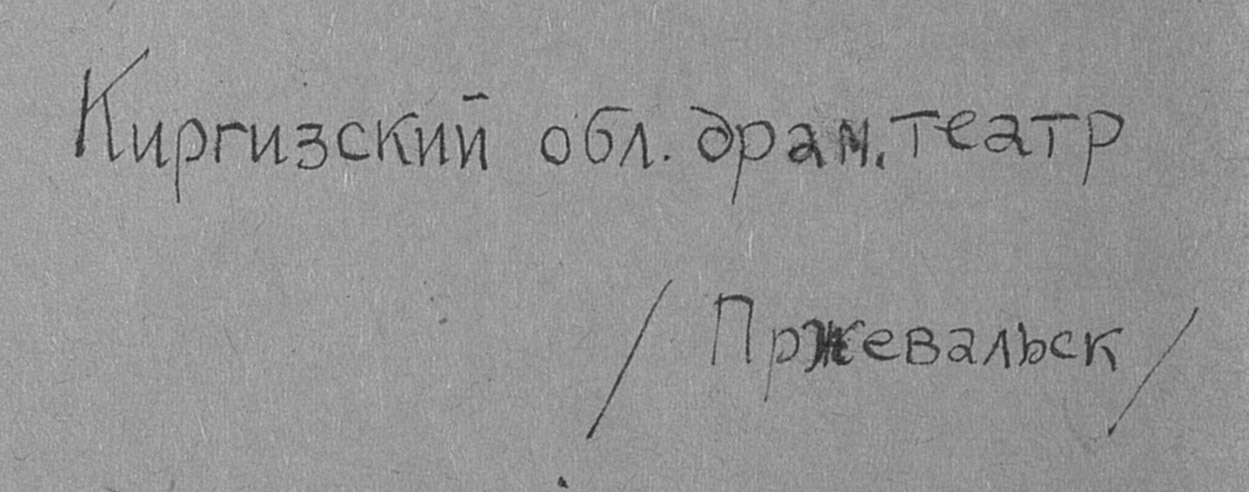 Киргизский обл. драм. театр
/ Пржевальск /